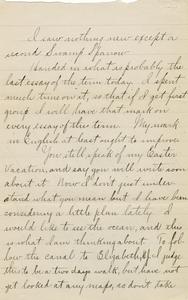 I saw nothing new except a
second Swamp Sparrow.
Handed in what is probably the
last essay of the term today. I spent
much time on it, so that if I get first
group I will have that mark on
every essay of this term. My mark
in English at least ought to improve.
You still speak of my Easter
Vacation, and say you will write soon
about it. Now I don't just under-
stand what you mean but I have been
considering a little plan lately. I
would like to see the ocean, and this
is what I am thinking about. To fol-
low the canal to Elizabeth, I judge
this to be a two days walk, but have not
yet looked at any maps, so don't take